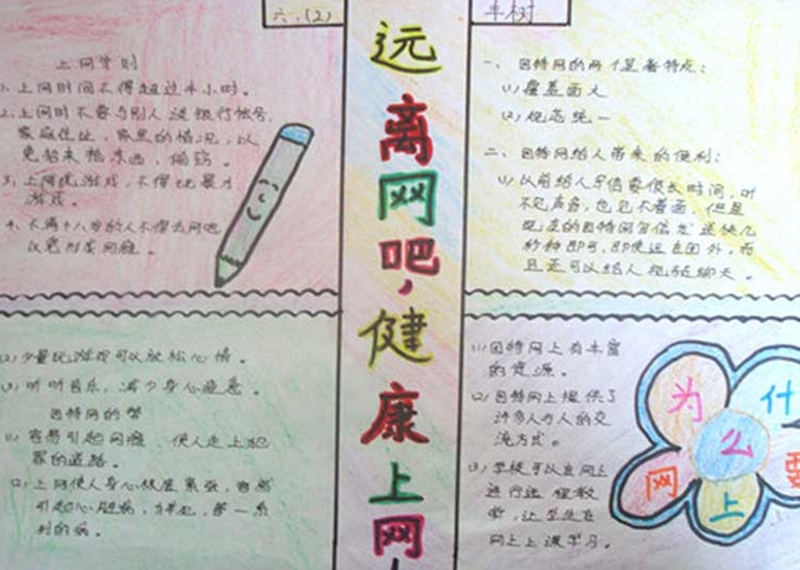 六.(2)
上网守则
1.上网时间不得超过半小时。
2.上网时不要与别人谈银行帐号,
家庭住址,家里的情况,以
免招来抢东西,偷窃。
3.上网玩游戏,不得玩暴力
游戏。
4.不满十八岁的人不得去网吧
以免形成网瘾。
(2)少量玩游戏可以放松心情。
(3)听听音乐,减少身心疲惫。
因特网的弊
(1)容易引起网瘾,使人走上犯
罪的道路。
(2)上网使人身心极度紧张,容易
引起心脏病,
利的病。
远离网吧,健康上网
一、因特网的两个显著特点:
(1)覆盖面大
(2)规范统一
二、因特网给人带来的便利:
(1)以前给人写信要很长时间,听
不见声音,也见不着面,但是
现在的因特网写信发送快几
秒种即可,即使远在国外,而
且还可以给人视频聊天。
(1)因特网上有丰富
的资源。
(2)因特网上提供了
许多人与人的交
流方式。
(3)学校可以在网上
进行远程教
学,让学生在
网上上课学习。
为什
么要
上网